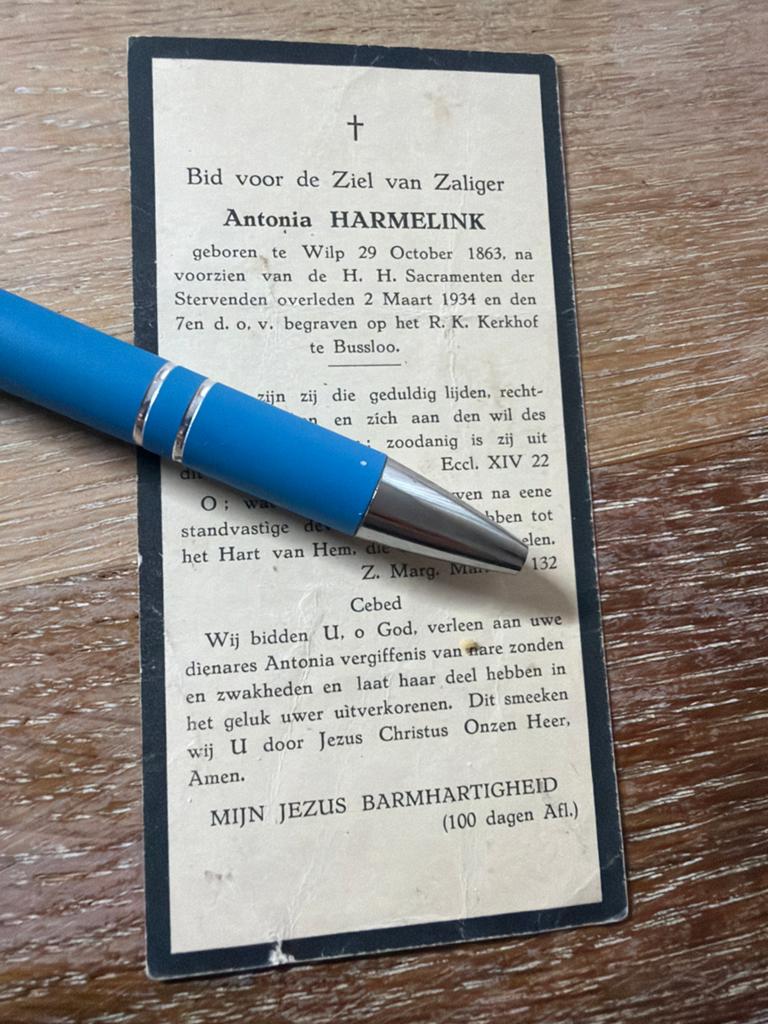 Bid voor de Ziel van Zaliger
Antonia HARMELINK
geboren te Wilp 29 October 1863, na
voorzien van de H. H. Sacramenten der
Stervenden overleden 2 Maart 1934 en den
7en d. o. v. begraven op het R. K. Kerkhof
te Bussloo.
zijn zij die geduldig lijden, recht-
en zich aan den wil des
zoodanig is zij uit
Eccl. XIV 22
O; na eene
standvastige
het Hart van Hem, die
Z. Marg. 132
Cebed
Wij bidden U, o God, verleen aan uwe
dienares Antonia vergiffenis van hare zonden
en zwakheden en laat haar deel hebben in
het geluk uwer uitverkorenen. Dit smeeken
wij U door Jezus Christus Onzen Heer,
Amen.
MIJN JEZUS BARMHARTIGHEID
(100 dagen Afl.)